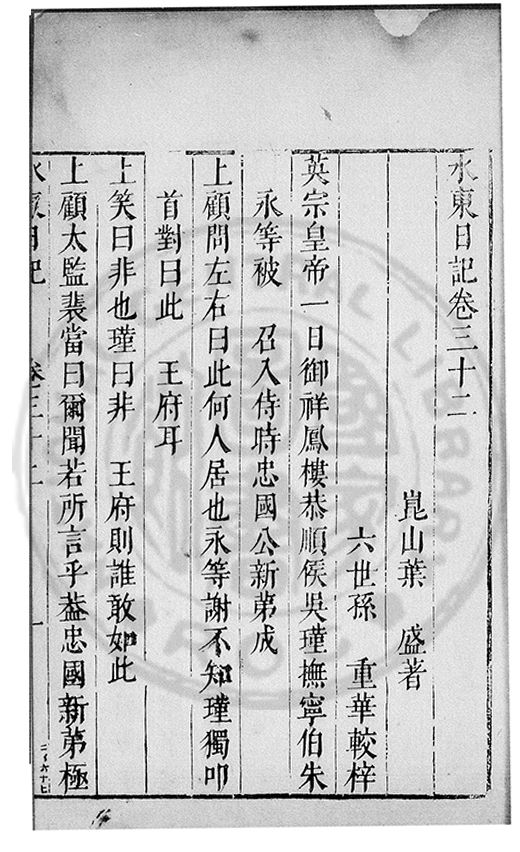 水東日記卷三十二
崑山葉　盛著
六世孫　重華較梓
英宗皇帝一日御祥鳳樓恭順侯吳瑾撫寧伯朱
永等被　召入侍時忠國公新第成
上顧問左右曰此何人居也永等謝不知瑾獨叩
首對曰此　王府耳
上笑曰非也瑾曰非　王府則誰敢如此
上顧太監裴當曰爾聞若所言乎葢忠國新第極
水東日記　卷三十二　一